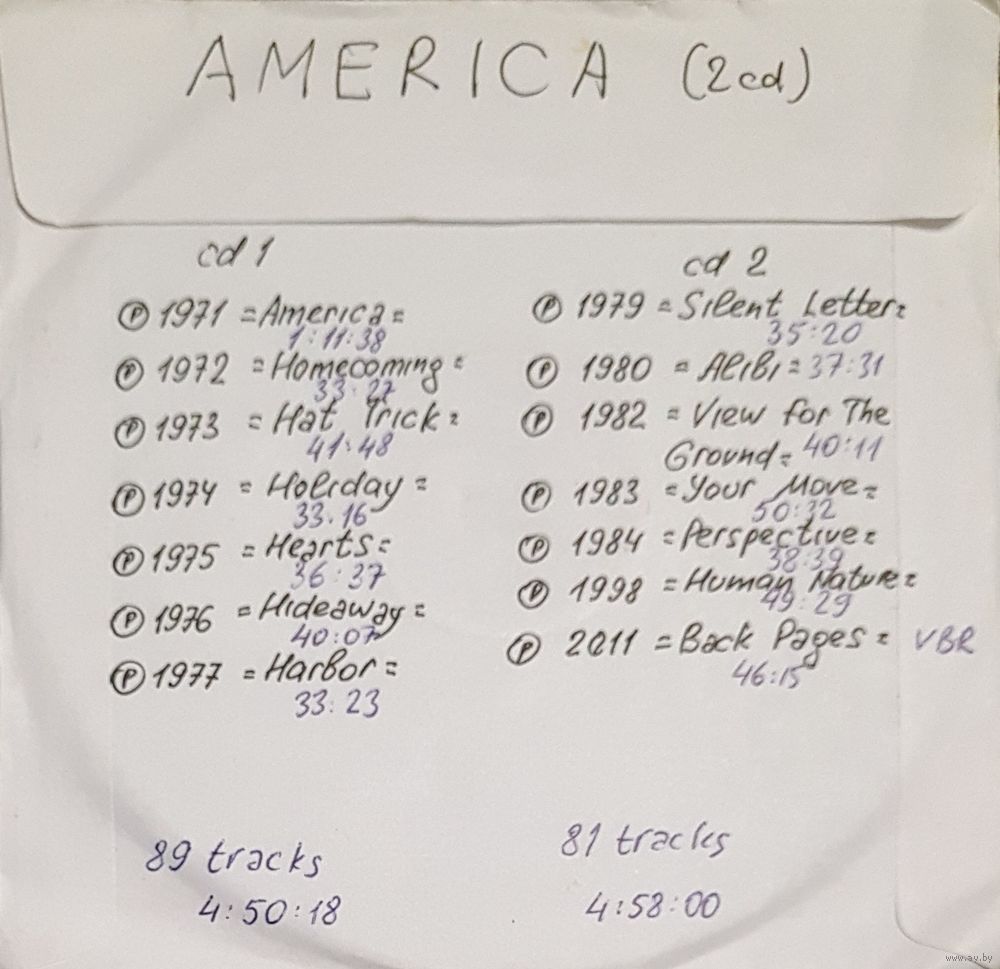 AMERICA (2cd)
cd 1
Ⓟ 1971 =America=
1:11:38
Ⓟ 1972 =Homecoming=
33:27
Ⓟ 1973 =Hat Trick=
41:48
Ⓟ 1974 =Holiday=
33:16
Ⓟ 1975 =Hearts=
36:37
Ⓟ 1976 =Hideaway=
40:07
Ⓟ 1977 =Harbor=
33:23
89 tracks
4:50:18
cd 2
Ⓟ 1979 =Silent Letter=
35:20
Ⓟ 1980 =Alibi= 37:31
Ⓟ 1982 =View for The
Ground= 40:11
Ⓟ 1983 =Your Move=
50:32
Ⓟ 1984 =Perspective=
38:39
Ⓟ 1998 =Human Nature=
49:29
Ⓟ 2011 =Back Pages= VBR
46:15
81 tracks
4:58:00
www.ay.by